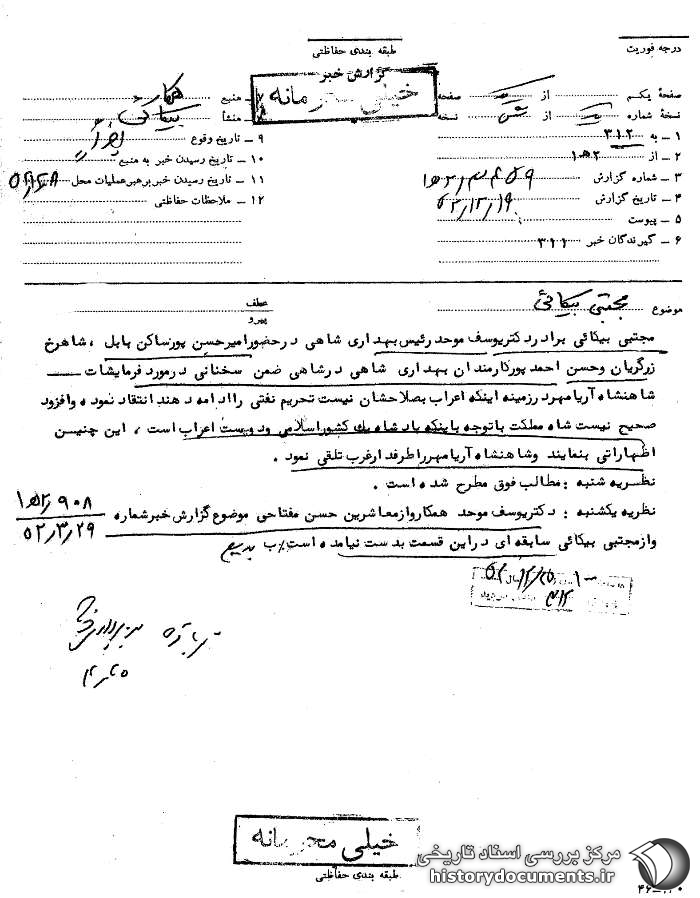 درجه فوریت
طبقه بندی حفاظتی
گزارش خبر
خیلی محرمانه
صفحهٔ یکم از صفحه
نسخهٔ شماره از نسخه
۱ - به ۳۱۲
۲ - از ۲ه۱
۳ - شماره گزارش
۴ - تاریخ گزارش ۵۲/۱۲/۱۹
۵ - پیوست
۶ - گیرندگان خبر ۳۱۱
۷ - منبع همکار
۸ - منشأ بیکائی
۹ - تاریخ وقوع
۱۰ - تاریخ رسیدن خبر به منبع
۱۱ - تاریخ رسیدن خبر برهبر عملیات محل
۱۲ - ملاحظات حفاظتی
موضوع مجتبی بیکائی
عطف
پیرو
مجتبی بیکائی برادر دکتر یوسف موحد رئیس بهداری شاهی در حضور امیر حسن پور ساکن بابل ، شاهرخ
زرگریان و حسن احمد پور کارمندان بهداری شاهی در شاهی ضمن سخنانی در مورد فرمایشات
شاهنشاه آریامهر در زمینه اینکه اعراب بصلاحشان نیست تحریم نفتی را ادامه دهند انتقاد نموده و افزود
صحیح نیست شاه مملکت با توجه باینکه پادشاه یک کشور اسلامی و دوست اعراب است ، این چنین
اظهاراتی بنمایند و شاهنشاه آریامهر را طرفدار غرب تلقی نمود .
نظریه شنبه : مطالب فوق مطرح شده است .
نظریه یکشنبه : دکتر یوسف موحد همکار و از معاشرین حسن مفتاحی موضوع گزارش خبر شماره ۲/۹۰۸ه۱
۵۲/۳/۲۹
و از مجتبی بیکائی سابقه ای در این قسمت بدست نیامده است / ب بدیع
خیلی محرمانه
طبقه بندی حفاظتی
مرکز بررسی اسناد تاریخی
historydocuments.ir